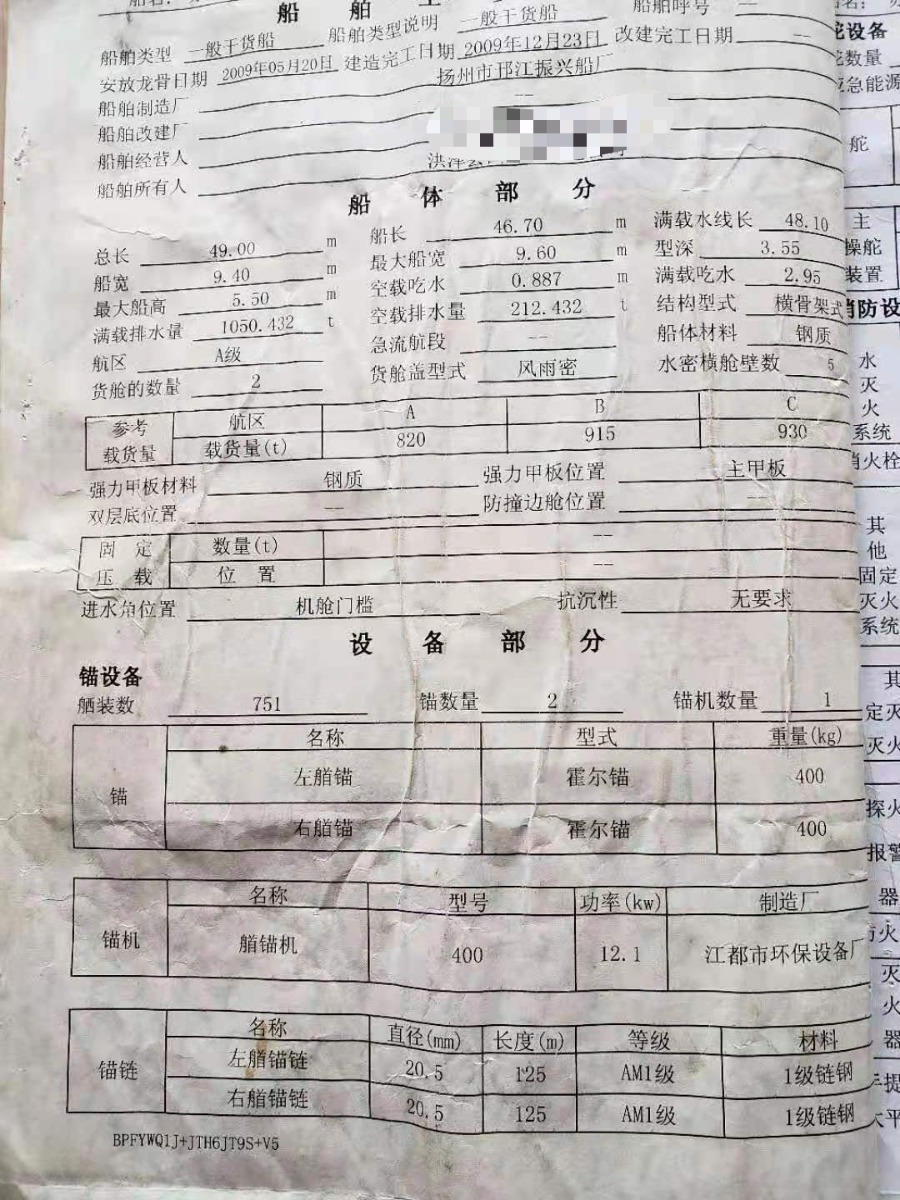 船舶主
船舶类型 一般干货船 船舶类型说明 一般干货船 船舶呼号 --
安放龙骨日期 2009年05月20日 建造完工日期 2009年12月23日 改建完工日期 --
船舶制造厂 扬州市邗江振兴船厂
船舶改建厂 --
船舶经营人
船舶所有人 洪泽
船体部分
总长 49.00 m 船长 46.70 m 满载水线长 48.10
船宽 9.40 m 最大船宽 9.60 m 型深 3.55
最大船高 5.50 m 空载吃水 0.887 m 满载吃水 2.95
满载排水量 1050.432 t 空载排水量 212.432 t 结构型式 横骨架式
航区 A级 急流航段 -- 船体材料 钢质
货舱的数量 2 货舱盖型式 风雨密 水密横舱壁数 5
参考载货量 航区 A B C
载货量(t) 820 915 930
强力甲板材料 钢质 强力甲板位置 主甲板
双层底位置 -- 防撞边舱位置 --
固定压载 数量(t) --
位置 --
进水角位置 机舱门槛 抗沉性 无要求
设备部分
锚设备
舾装数 751 锚数量 2 锚机数量 1
锚 名称 型式 重量(kg)
左艏锚 霍尔锚 400
右艏锚 霍尔锚 400
锚机 名称 型号 功率(kw) 制造厂
艏锚机 400 12.1 江都市环保设备厂
锚链 名称 直径(mm) 长度(m) 等级 材料
左艏锚链 20.5 125 AM1级 1级链钢
右艏锚链 20.5 125 AM1级 1级链钢
BPFYWQ1J+JTH6JT9S+V5
舵设备
舵数量
应急能源
舵
主
操舵
装置
消防设
水
灭
火
系统
消火栓
其
他
固定
灭火
系统
其
定灭
灭火
探火
报警
器
防火
灭
火
器
手提
太平